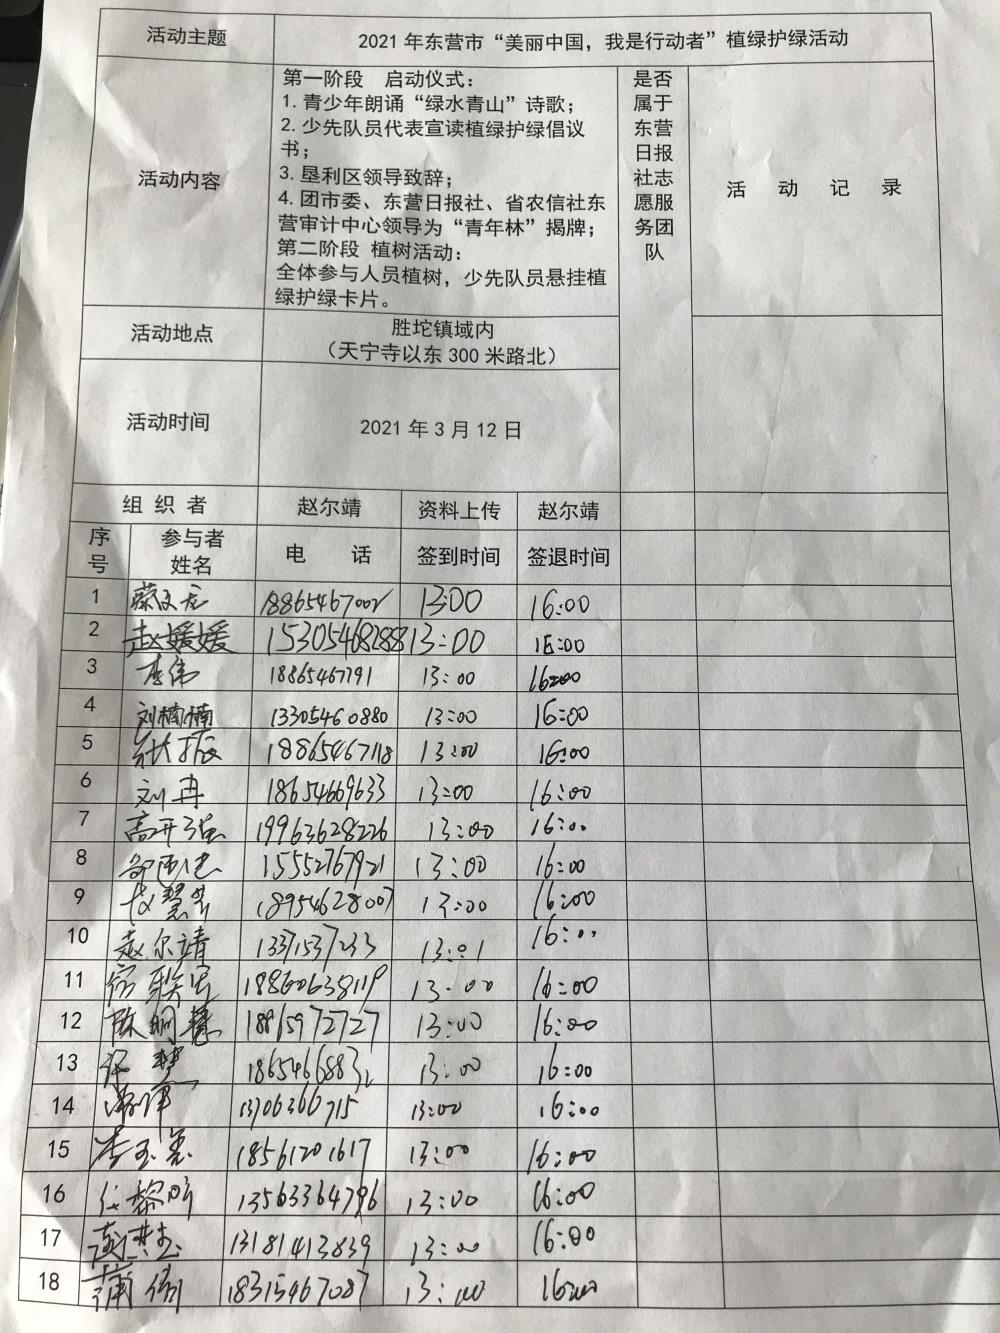 活动主题 2021 年东营市“美丽中国，我是行动者”植绿护绿活动
活动内容
第一阶段 启动仪式：
1. 青少年朗诵“绿水青山”诗歌；
2. 少先队员代表宣读植绿护绿倡议
书；
3. 垦利区领导致辞；
4. 团市委、东营日报社、省农信社东
营审计中心领导为“青年林”揭牌；
第二阶段 植树活动：
全体参与人员植树，少先队员悬挂植
绿护绿卡片。
是否
属于
东营
日报
社志
愿服
务团
队
活 动 记 录
活动地点
胜坨镇域内
（天宁寺以东 300 米路北）
活动时间 2021 年 3 月 12 日
组 织 者 赵尔靖 资料上传 赵尔靖
序
号
参与者
姓名
电 话 签到时间 签退时间
1 18865467002 13:00 16:00
2 赵媛媛 15305468288 13:00 16:00
3 李伟 18865467791 13:00 16:00
4 刘楠楠 13305460880 13:00 16:00
5 18865467118 13:00 16:00
6 刘冉 18654669633 13:00 16:00
7 19963628226 13:00 16:00
8 15552767921 13:00 16:00
9 18954628007 13:00 16:00
10 赵尔靖 13371537233 16:00
11 18860638119 13:00 16:00
12 陈明慧 13:00 16:00
13 13:00 16:00
14 13706366715 13:00 16:00
15 18561201617 13:00 16:00
16 13563364796 13:00 16:00
17 13181413839 13:00 16:00
18 18315467087 13:00 16:00